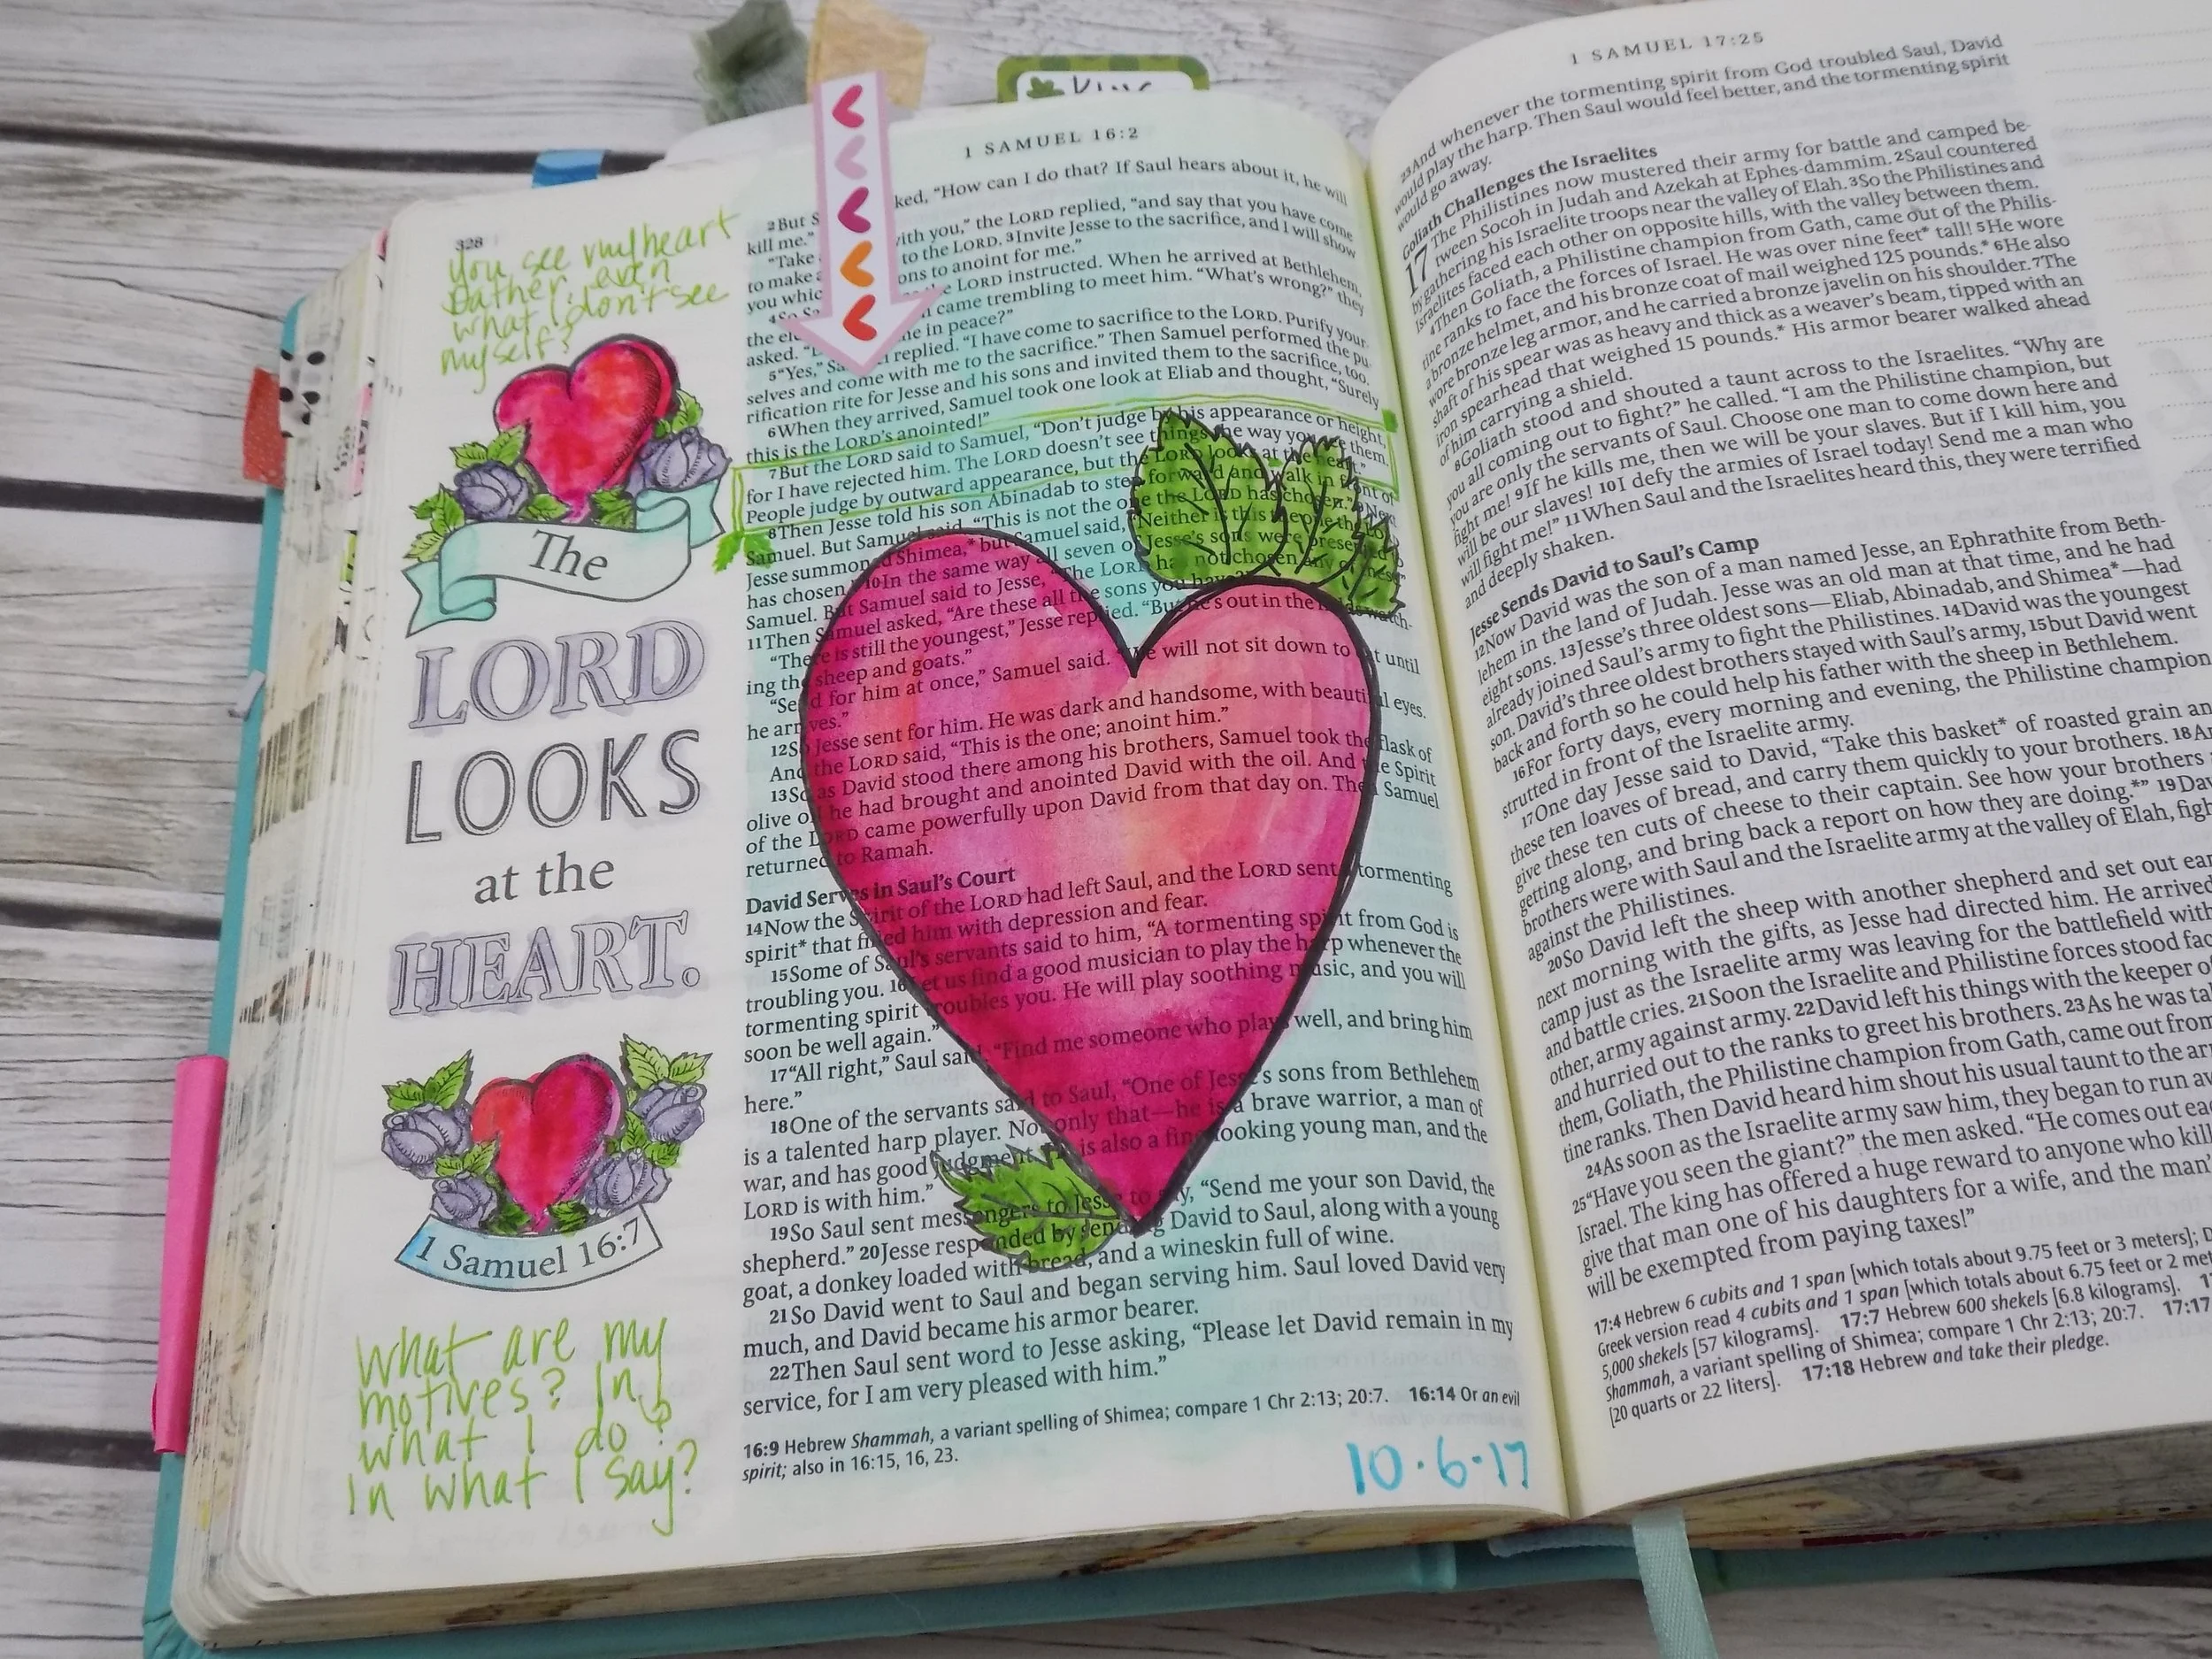 King
1 SAMUEL 16:2
328
you see my heart
Father, even
what I don't see
myself?
The
LORD
LOOKS
at the
HEART.
1 Samuel 16:7
What are my
motives? In
what I do &
In what I say?
2But S ked, "How can I do that? If Saul hears about it, he will
kill me."
"Take with you," the LORD replied, "and say that you have come
to make to the LORD. 3Invite Jesse to the sacrifice, and I will show
you whic ons to anoint for me."
4So Sa e LORD instructed. When he arrived at Bethlehem,
the el came trembling to meet him. "What's wrong?" they
asked. me in peace?"
5"Yes," Sa replied. "I have come to sacrifice to the LORD. Purify your-
selves and come with me to the sacrifice." Then Samuel performed the pu-
rification rite for Jesse and his sons and invited them to the sacrifice, too.
6When they arrived, Samuel took one look at Eliab and thought, "Surely
this is the LORD's anointed!"
7But the LORD said to Samuel, "Don't judge by his appearance or height,
for I have rejected him. The LORD doesn't see things the way you see them.
People judge by outward appearance, but the LORD looks at the heart."
8Then Jesse told his son Abinadab to step forward and walk in front of
Samuel. But Samuel said, "This is not the one the LORD has chosen." 9Next
Jesse summoned Shimea,* but Samuel said, "Neither is this the one the LORD
has chosen." 10In the same way all seven of Jesse's sons were presented to
Samuel. But Samuel said to Jesse, "The LORD has not chosen any of these."
11Then Samuel asked, "Are these all the sons you have?"
"There is still the youngest," Jesse replied. "But he's out in the fields watch-
ing the sheep and goats."
"Send for him at once," Samuel said. "We will not sit down to eat until
he arrives."
12So Jesse sent for him. He was dark and handsome, with beautiful eyes.
And the LORD said, "This is the one; anoint him."
13So as David stood there among his brothers, Samuel took the flask of
olive oil he had brought and anointed David with the oil. And the Spirit
of the LORD came powerfully upon David from that day on. Then Samuel
returned to Ramah.
David Serves in Saul's Court
14Now the Spirit of the LORD had left Saul, and the LORD sent a tormenting
spirit* that filled him with depression and fear.
15Some of Saul's servants said to him, "A tormenting spirit from God is
troubling you. 16Let us find a good musician to play the harp whenever the
tormenting spirit troubles you. He will play soothing music, and you will
soon be well again."
17"All right," Saul said. "Find me someone who plays well, and bring him
here."
18One of the servants said to Saul, "One of Jesse's sons from Bethlehem
is a talented harp player. Not only that—he is a brave warrior, a man of
war, and has good judgment. He is also a fine-looking young man, and the
LORD is with him."
19So Saul sent messengers to Jesse to say, "Send me your son David, the
shepherd." 20Jesse responded by sending David to Saul, along with a young
goat, a donkey loaded with bread, and a wineskin full of wine.
21So David went to Saul and began serving him. Saul loved David very
much, and David became his armor bearer.
22Then Saul sent word to Jesse asking, "Please let David remain in my
service, for I am very pleased with him."
16:9 Hebrew Shammah, a variant spelling of Shimea; compare 1 Chr 2:13; 20:7. 16:14 Or an evil
spirit; also in 16:15, 16, 23.
10·6·17
1 SAMUEL 17:25
23And whenever the tormenting spirit from God troubled Saul, David
would play the harp. Then Saul would feel better, and the tormenting spirit
would go away.
Goliath Challenges the Israelites
17 The Philistines now mustered their army for battle and camped be-
tween Socoh in Judah and Azekah at Ephes-dammim. 2Saul countered
by gathering his Israelite troops near the valley of Elah. 3So the Philistines and
Israelites faced each other on opposite hills, with the valley between them.
4Then Goliath, a Philistine champion from Gath, came out of the Philis-
tine ranks to face the forces of Israel. He was over nine feet* tall! 5He wore
a bronze helmet, and his bronze coat of mail weighed 125 pounds.* 6He also
wore bronze leg armor, and he carried a bronze javelin on his shoulder. 7The
shaft of his spear was as heavy and thick as a weaver's beam, tipped with an
iron spearhead that weighed 15 pounds.* His armor bearer walked ahead
of him carrying a shield.
8Goliath stood and shouted a taunt across to the Israelites. "Why are
you all coming out to fight?" he called. "I am the Philistine champion, but
you are only the servants of Saul. Choose one man to come down here and
fight me! 9If he kills me, then we will be your slaves. But if I kill him, you
will be our slaves! 10I defy the armies of Israel today! Send me a man who
will fight me!" 11When Saul and the Israelites heard this, they were terrified
and deeply shaken.
Jesse Sends David to Saul's Camp
12Now David was the son of a man named Jesse, an Ephrathite from Beth-
lehem in the land of Judah. Jesse was an old man at that time, and he had
eight sons. 13Jesse's three oldest sons—Eliab, Abinadab, and Shimea*—had
already joined Saul's army to fight the Philistines. 14David was the youngest
son. David's three oldest brothers stayed with Saul's army, 15but David went
back and forth so he could help his father with the sheep in Bethlehem.
16For forty days, every morning and evening, the Philistine champion
strutted in front of the Israelite army.
17One day Jesse said to David, "Take this basket* of roasted grain an
these ten loaves of bread, and carry them quickly to your brothers. 18An
give these ten cuts of cheese to their captain. See how your brothers
getting along, and bring back a report on how they are doing.*" 19Dav
brothers were with Saul and the Israelite army at the valley of Elah, figh
against the Philistines.
20So David left the sheep with another shepherd and set out ear
next morning with the gifts, as Jesse had directed him. He arrived
camp just as the Israelite army was leaving for the battlefield with
and battle cries. 21Soon the Israelite and Philistine forces stood fac
other, army against army. 22David left his things with the keeper of
and hurried out to the ranks to greet his brothers. 23As he was tal
them, Goliath, the Philistine champion from Gath, came out from
tine ranks. Then David heard him shout his usual taunt to the ar
24As soon as the Israelite army saw him, they began to run aw
25"Have you seen the giant?" the men asked. "He comes out eac
Israel. The king has offered a huge reward to anyone who kill
give that man one of his daughters for a wife, and the man'
will be exempted from paying taxes!"
17:4 Hebrew 6 cubits and 1 span [which totals about 9.75 feet or 3 meters]; D
Greek version read 4 cubits and 1 span [which totals about 6.75 feet or 2 met
5,000 shekels [57 kilograms]. 17:7 Hebrew 600 shekels [6.8 kilograms]. 1
Shammah, a variant spelling of Shimea; compare 1 Chr 2:13; 20:7. 17:17
[20 quarts or 22 liters]. 17:18 Hebrew and take their pledge.